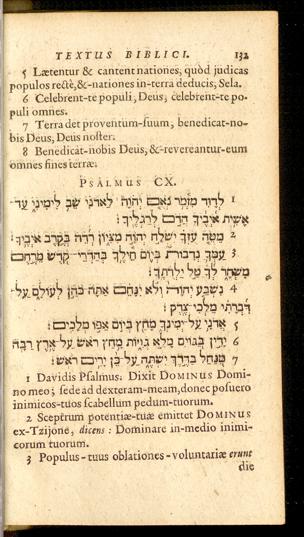 TEXTUS BIBLICI. 132
5 Lætentur & cantent nationes, quòd judicas
populos rectè, &-nationes in-terra deducis, Sela.
6 Celebrent-te populi, Deus; celebrent-te po-
puli omnes.
7 Terra det proventum-suum; benedicat-no-
bis Deus, Deus noster.
8 Benedicat-nobis Deus, &-revereantur-eum
omnes fines terræ.
PSALMUS CX.
1 לְדָוִד מִזְמֹר נְאֻם יְהוָה לַאדֹנִי שֵׁב לִימִינִי עַד־
אָשִׁית אֹיְבֶיךָ הֲדֹם לְרַגְלֶיךָ׃
2 מַטֵּה עֻזְּךָ יִשְׁלַח יְהוָה מִצִּיּוֹן רְדֵה בְּקֶרֶב אֹיְבֶיךָ׃
3 עַמְּךָ נְדָבוֹת בְּיוֹם חֵילֶךָ בְּהַדְרֵי־קֹדֶשׁ מֵרֶחֶם
מִשְׁחָר לְךָ טַל יַלְדֻתֶךָ׃
4 נִשְׁבַּע יְהוָה וְלֹא יִנָּחֵם אַתָּה כֹהֵן לְעוֹלָם עַל־
דִּבְרָתִי מַלְכִּי־צֶדֶק׃
5 אֲדֹנָי עַל־יְמִינְךָ מָחַץ בְּיוֹם אַפּוֹ מְלָכִים׃
6 יָדִין בַּגּוֹיִם מָלֵא גְוִיּוֹת מָחַץ רֹאשׁ עַל־אֶרֶץ רַבָּה
7 מִנַּחַל בַּדֶּרֶךְ יִשְׁתֶּה עַל־כֵּן יָרִים רֹאשׁ׃
1 Davidis Psalmus. Dixit DOMINUS Domi-
no meo; sede ad dexteram-meam, donec posuero
inimicos-tuos scabellum pedum-tuorum.
2 Sceptrum potentiæ-tuæ emittet DOMINUS
ex-Tzijone, dicens: Dominare in-medio inimi-
corum tuorum.
3 Populus-tuus oblationes-voluntariæ erunt
die